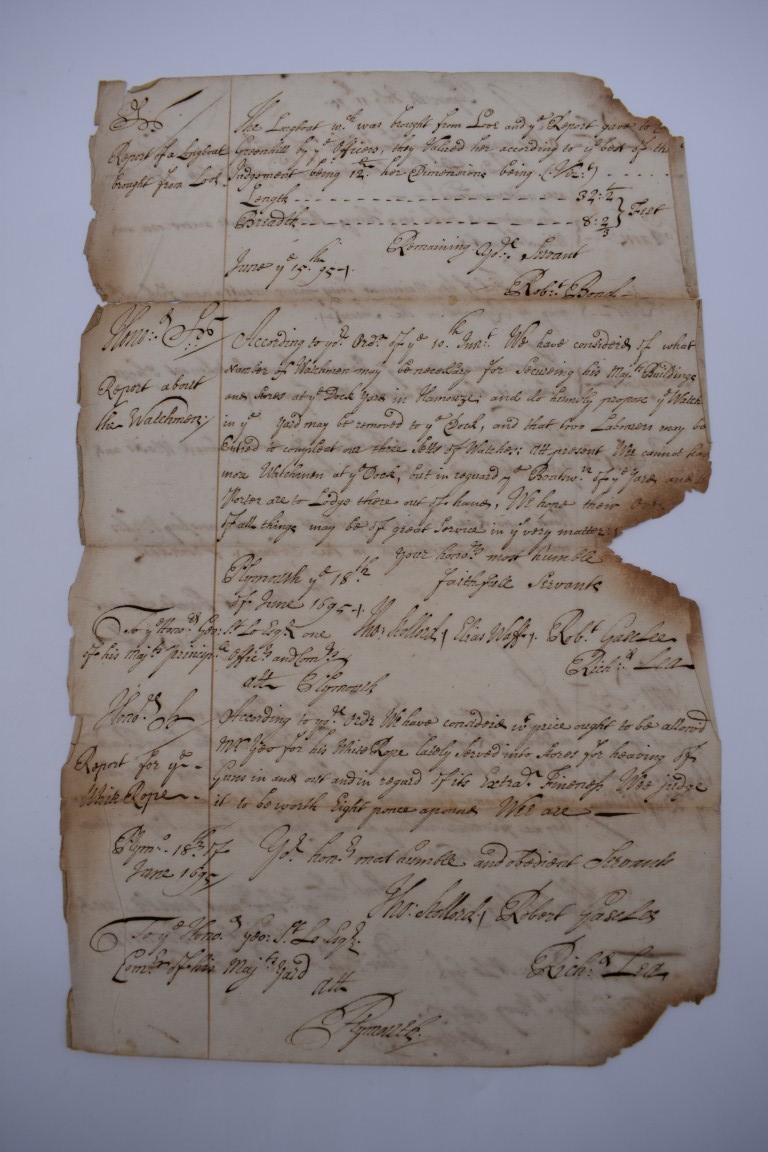 Sr
Report of a Longboat
brought from Loo
The Longboat wch. was brought from Loo and ye. Report gave to
Greenhill by ye. Officers, they Valued her according to ye best of the
Judgement being 12£: her Dimensions being (Vizt.)
Length 32:½
Breadth 8:⅔ } Feet
Remaining Yor. Servant
June ye 15th. 95
Robt. Bond
Honod. Sr
Report about
the Watchmen
According to yor. Ordr. of ye 10th Inst. We have considerd of what
Number of Watchmen may be necessary for Secureing his Majts. Buildings
and Stores at ye Dock Yard in Hamouze; and do humbly propose ye Watch
in ye Yard may be removed to ye Dock, and that two Labourers may be
Entred to compleat out three Setts of Watches: att present We cannot
more Watchmen at ye Dock, but in regard ye Boatswn. of ye Yard and
Porter are to Lodge there out of hand, We hope their
of all things may be of great Service in ye very matter
Your honors. most humble
faithfull Servants
Plymouth ye 18th
of June 1695
To ye Honod. Geo: St Lo Esqr. one
of his Majts. Principl. Officrs. and Comrs.
att Plymouth
Tho: Hollord, Elias Waffe, Robt. Gaselee
Richd. Lea
Honod. Sr
Report for ye
White Rope
According to yor. Ordr We have considerd wt. price ought to be allowd
Mr. Geo for his White Rope lately Served into Stores for heaving of
Guns in and out and in regard of its Extradr. Fineness Wee judge
it to be worth Eight pence a pound Wee are
Plymo. 18th. of
June 1695
Yor. honrs. most humble and obedient Servants
Tho: Hollord, Robert Gaselee
Richd. Lea
To ye Honod. Geo: St. Lo Esqr.
Comr. of his Majts. Yard
att
Plymouth